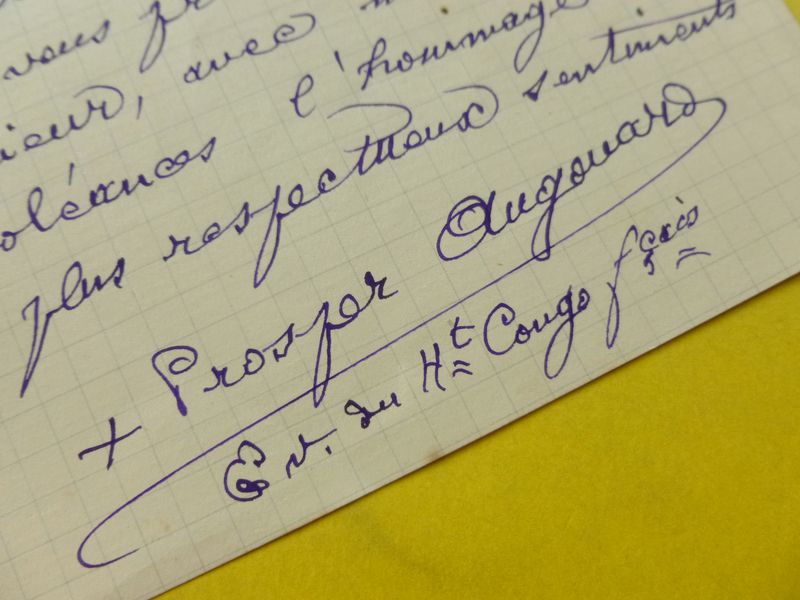 vous pr
ieur, avec
oléances l'hommage
plus respectueux sentiments
+ Prosper Augouard
Ev. du Ht Congo fçais